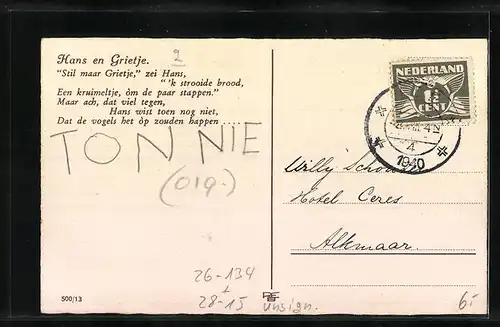 Hans en Grietje.
2
"Stil maar Grietje," zei Hans,
"'k strooide brood,
Een kruimeltje, òm de paar stappen."
Maar ach, dat viel tegen,
Hans wist toen nog niet,
Dat de vogels het òp zouden happen ....
TONNIE
(olg.)
NEDERLAND
CENT
4
1940
Willy
Hotel Ceres
Alkmaar
26-134
28-15
unsign.
500/13
6.-